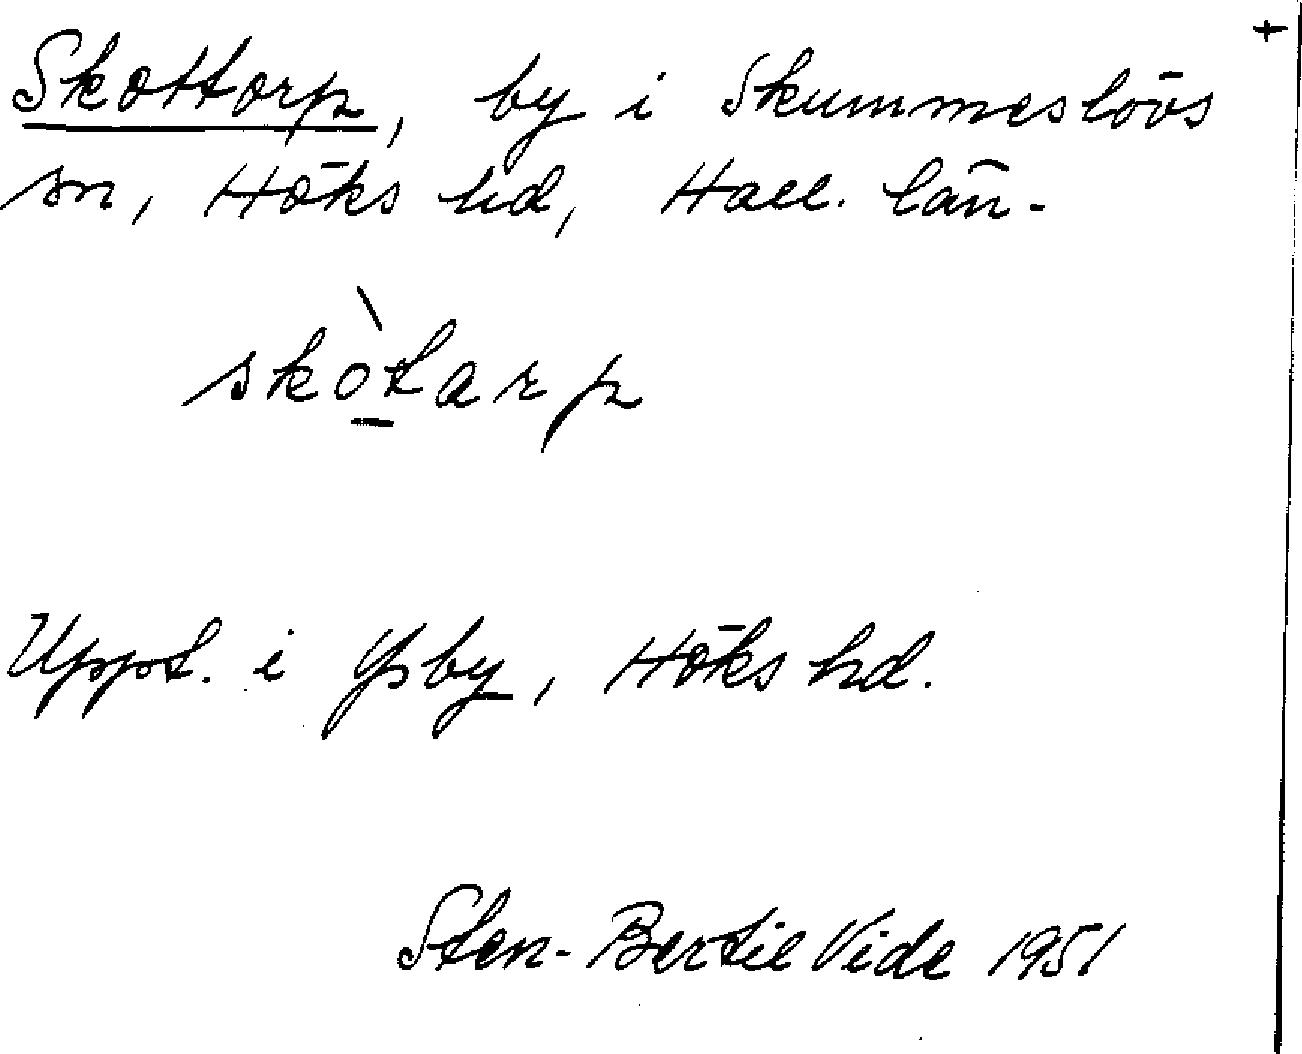 Skottorp, by i Skummeslövs
sn, Höks hd, Hall. län.
skò̠tarp
Uppt. i Ysby, Höks hd.
Sten-Bertil Vide 1951